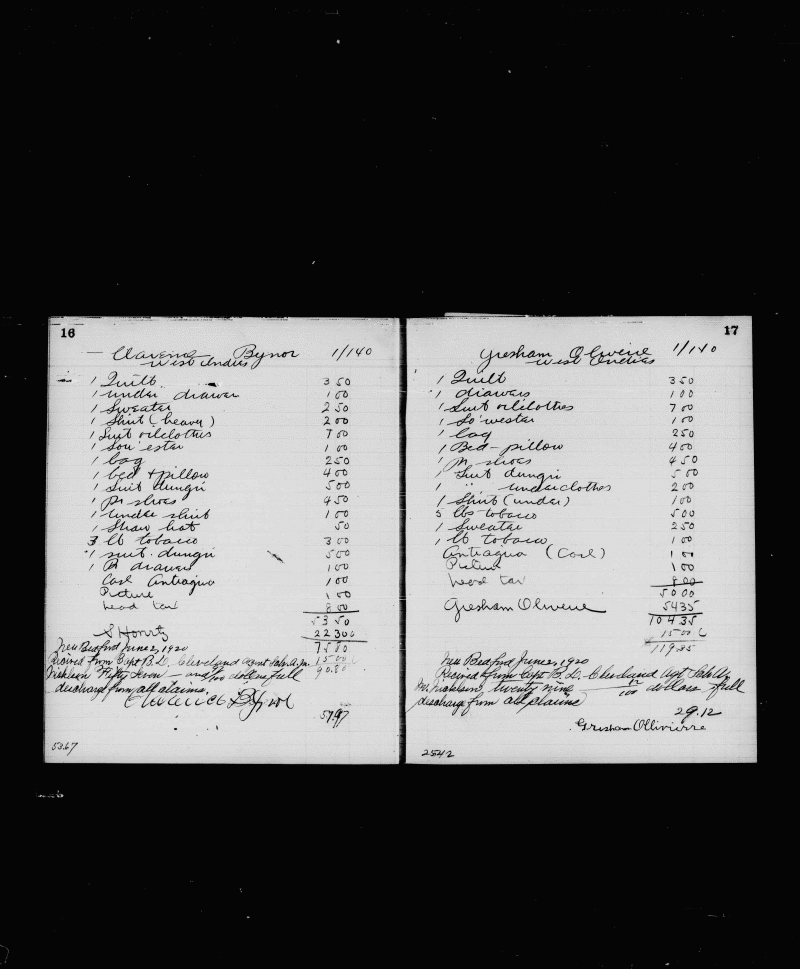 16
Clarence Bynor 1/140
West Indies
1 Quilt 3 50
1 under drawer 1 00
1 Sweater 2 50
1 Shirt (heavy) 2 00
1 Suit oilclothes 7 00
1 Sou'ester 1 00
1 bag 2 50
1 bed + pillow 4 00
1 suit dungri 5 00
1 pr shoes 4 50
1 under shirt 1 00
1 Straw hat 50
3 lb tobacco 3 00
1 suit dungri 5 00
1 Pr drawers 1 00
Cash Antiagua 1 00
Picture 1 00
head tax 8 00
53 50
22 30
75 80
New Bedford June 2, 1920
15 00
Recived from Capt B.D. Cleveland Agent Sch. A.M.
90.80
Nicholson Fifty Seven — and no dollars full
discharge from all claims.
Clarence Bynor
57.97
53.67
17
Gresham Oliveire 1/140
West Indies
1 Quilt 3 50
1 drawers 1 00
1 Suit oilclothes 7 00
1 So'wester 1 00
1 bag 2 50
1 Bed-pillow 4 00
1 pr shoes 4 50
1 Suit dungri 5 00
1 " underclothes 2 00
1 Shirt (under) 1 00
5 lbs tobacco 5 00
1 Sweater 2 50
1 lb tobacco 1 00
Antiagua (Cash) 1 00
Picture 1 00
head tax 8 00
50 00
Gresham Oliveire 54 35
104 35
15 00
119.35
New Bedford June 2, 1920
Recived from Capt B.D. Cleveland Agt Sch A.
M. Nicholson, twenty nine 12/100 dollars full
discharge from all claims
29.12
Gresham Ollivierre
2542